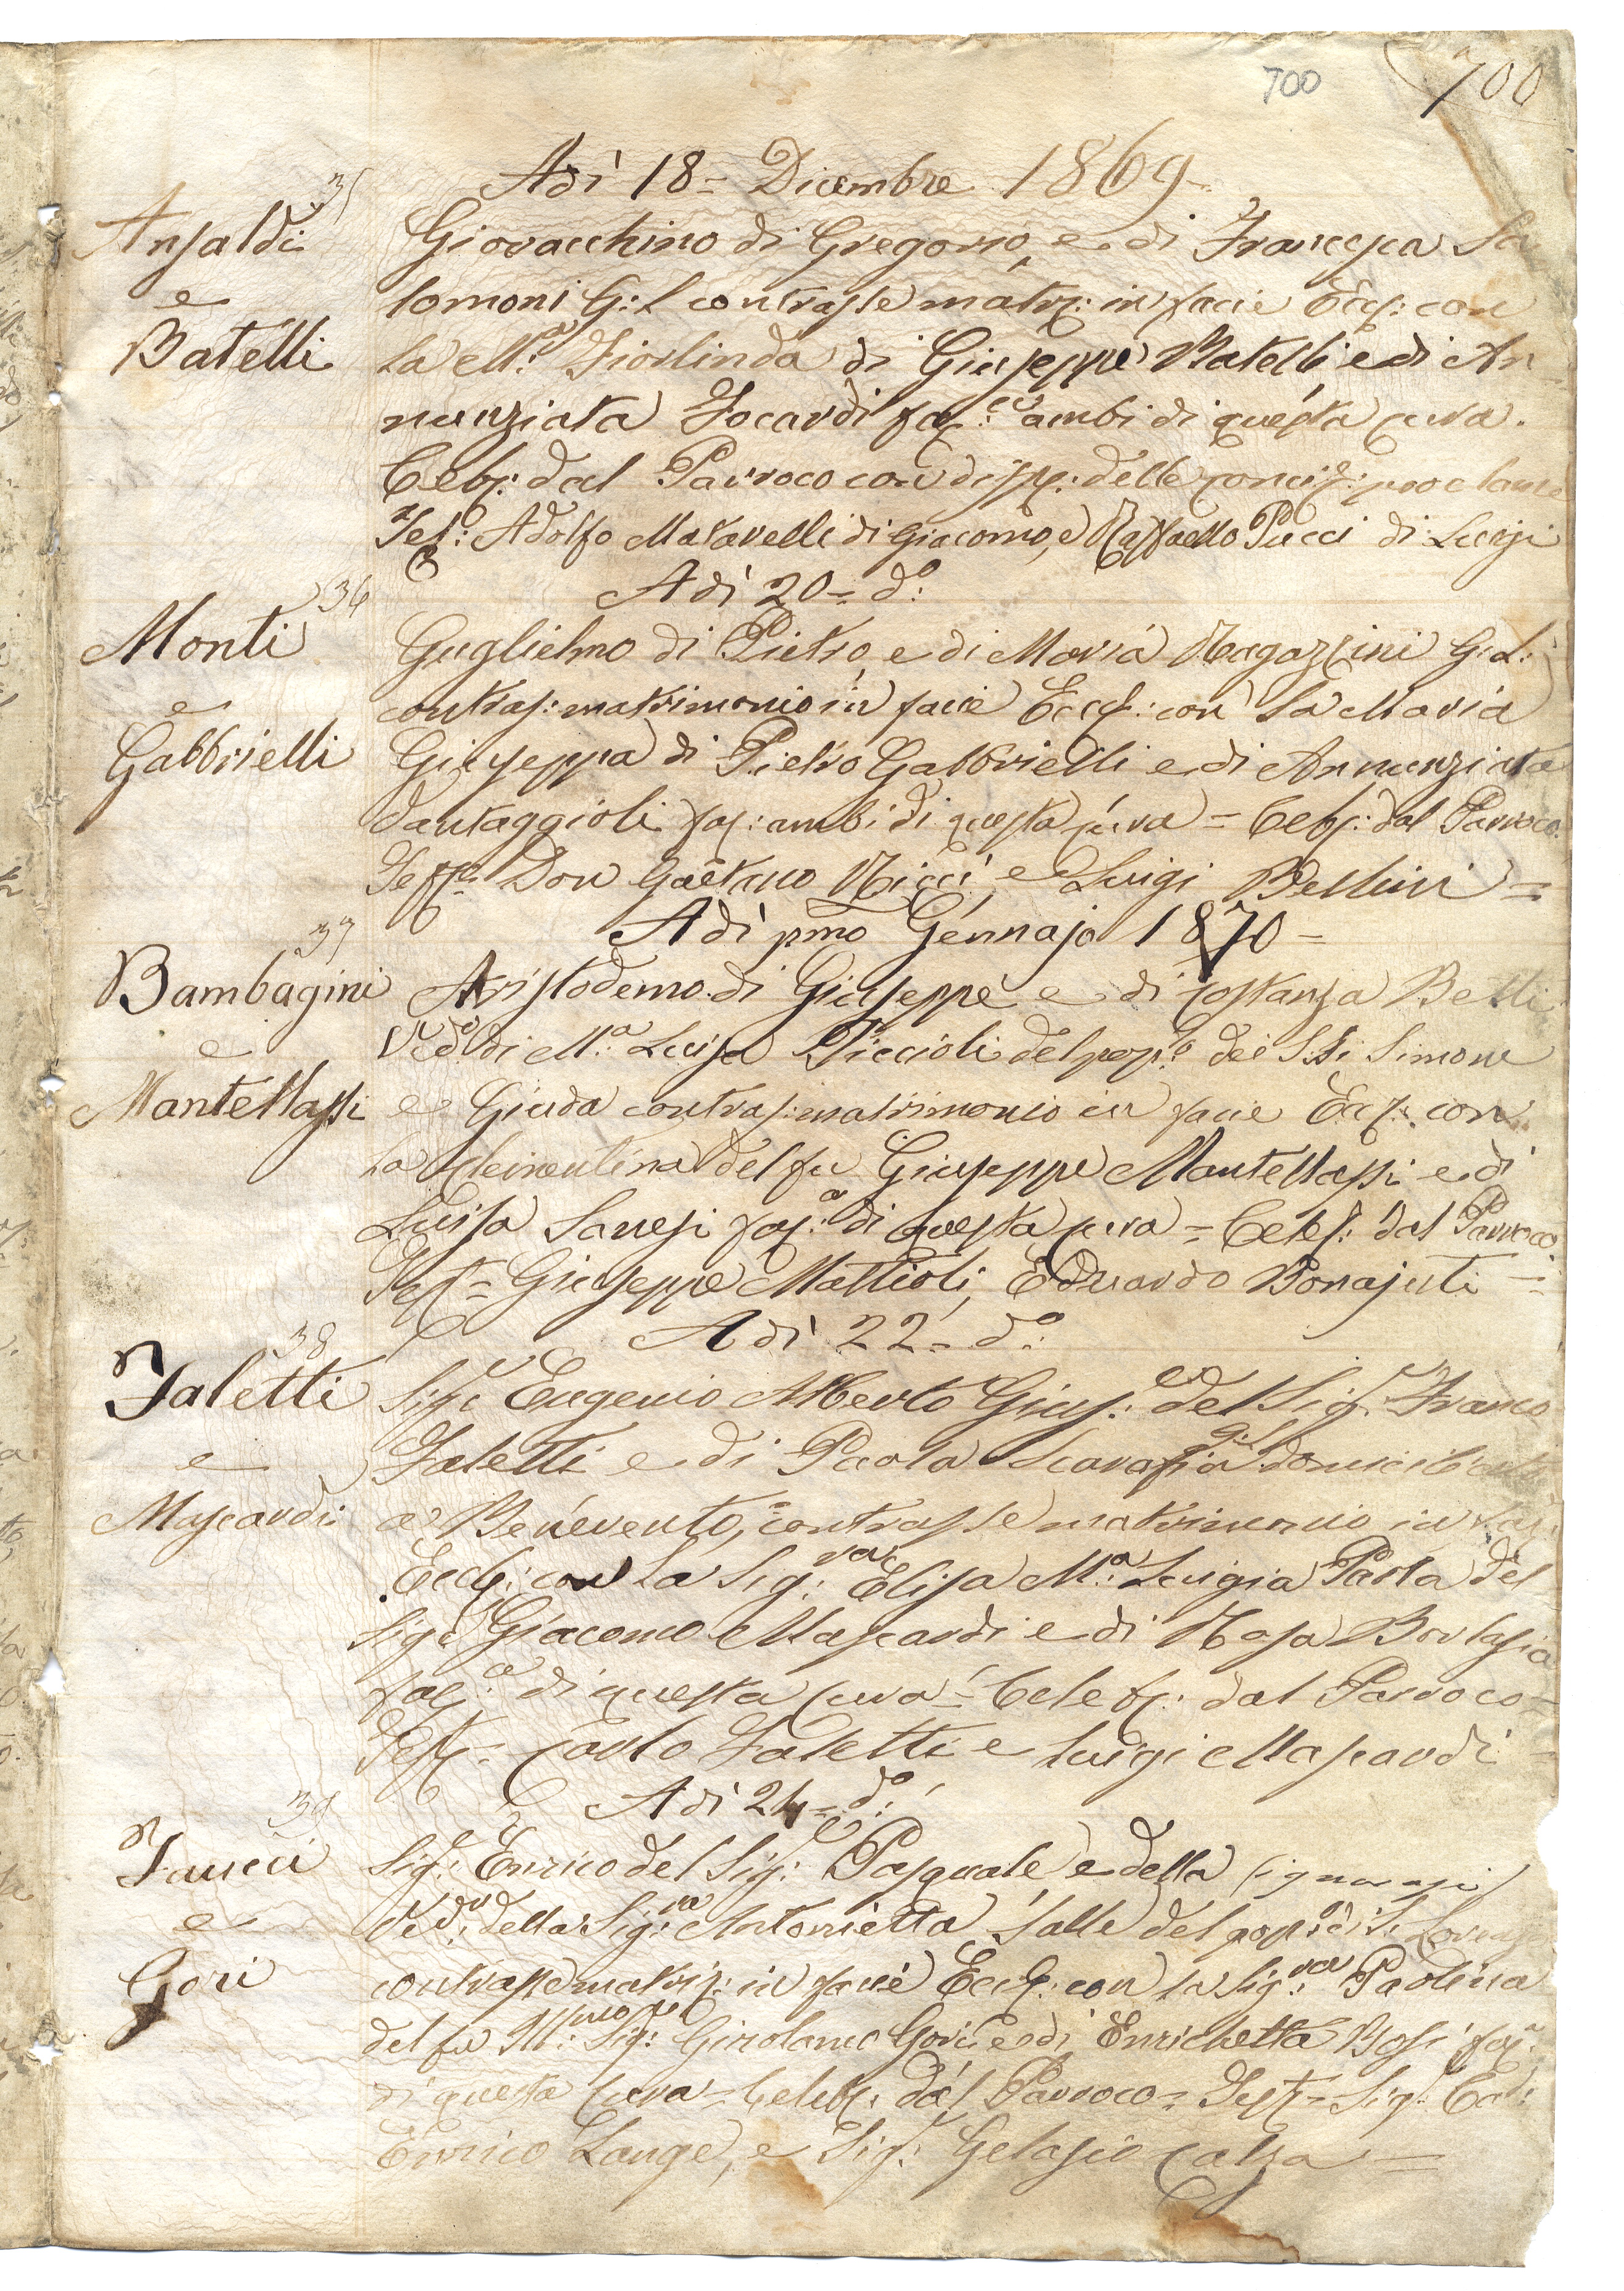 700 700
Adì 18 = Dicembre 1869 -
35
Ansaldi
e
Batelli
Giovacchino di Gregorio, e di Francesca Sa
lomoni G: L contrasse matr: in facie Eccl: con
la M.a Fiorlinda di Giuseppe Batelli e di An
nunziata Focardi fac: ambi di questa cura.
Celeb: dal Parroco con disp: delle proclame
Test: Adolfo Matavelli di Giacomo, e Raffaello Pucci di Luigi
Adì 20 = do:
36
Monti
e
Gabbrielli
Guglielmo di Pietro, e di Maria Ragazzini G: L:
contras: matrimonio in facie Eccl: con la Maria
Giuseppa di Pietro Gabbrielli e di Annunziata
Vantaggioli fac: ambi di questa cura = Celeb: dal Parroco.
Test= Don Gaetano Ricci, e Luigi Bellini =
Adì pmo Gennajo 1870 =
37
Bambagini
e
Mantellassi
Aristodemo di Giuseppe e di Costanza Betti
Vedo di M.a Luisa Piccioli del popo dei SSi Simone
e Giuda contras: matrimonio in facie Eccl: con
la Clementina del fu Giuseppe Mantellassi e di
Luisa Sanesi fac:a di questa cura = Celeb: dal Parroco
Test= Giuseppe Mattioli, Eduardo Bonajuti =
Adì 22 = do:
38
Faletti
e
Mascardi
Sigr Eugenio Alberto Gius:e del Sigr Franco
Faletti e di Paola Scarafia domiciliante
a Benevento, contrasse matrimonio in fac:
Eccl: con la Sig:ra Elisa M:a Luigia Paola del
Sigr Giacomo Mascardi e di Rosa Borlasia
fac:a di questa cura = Celeb: dal Parroco =
Test= Carlo Faletti e Luigi Mascardi
Adì 24 = do:
39
Faucci
e
Gori
Sigr: Enrico del Sigr: Pasquale e della
Vedo: della Sig:ra Antonietta Salle del popo: di S. Lorenzo
contrasse matriz: in facie Eccl: con la Sig:ra Paolina
del fu Ill:mo Sigr: Girolamo Gori e di Enrichetta Bosi fac:
di questa cura = Celeb: dal Parroco = Test= Sigr:
Enrico Lange, e Sigr: Gelasio Calza =